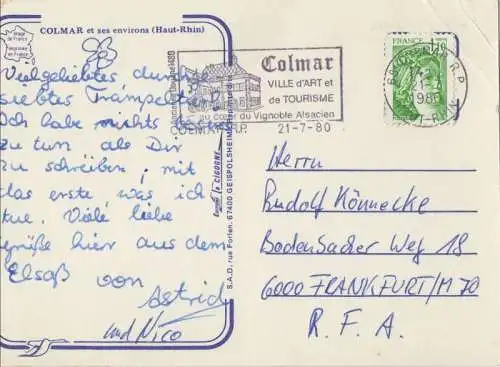 COLMAR et ses environs (Haut-Rhin)
Image de France
Imprimé en France
Vielgeliebtes durchge
liebtes Trampeltier!
Ich habe nichts
zu tun als Dir
zu schreiben, mit
das erste was ich
tue. Viele liebe
Grüße hier aus dem
Elsaß von
Astrid
und Nico
Colmar
VILLE d'ART et
de TOURISME
au cœur du Vignoble Alsacien
COLMAR R.P. 21-7-80
la CIGOGNE
S.A.D., rue Forlen, 67400 GEISPOLSHEIM
FRANCE
R.P.
21-7
1980
Herrn
Rudolf Könnecke
Bodenbacher Weg 18
6000 FRANKFURT/M 70
R. F. A.